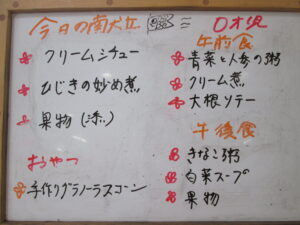 今日の献立
クリームシチュー
ひじきの炒め煮
果物(添)
おやつ
手作りグラノーラスコーン
0才児
午前食
青菜と人参の粥
クリーム煮
大根ソテー
午後食
きなこ粥
白菜スープ
果物